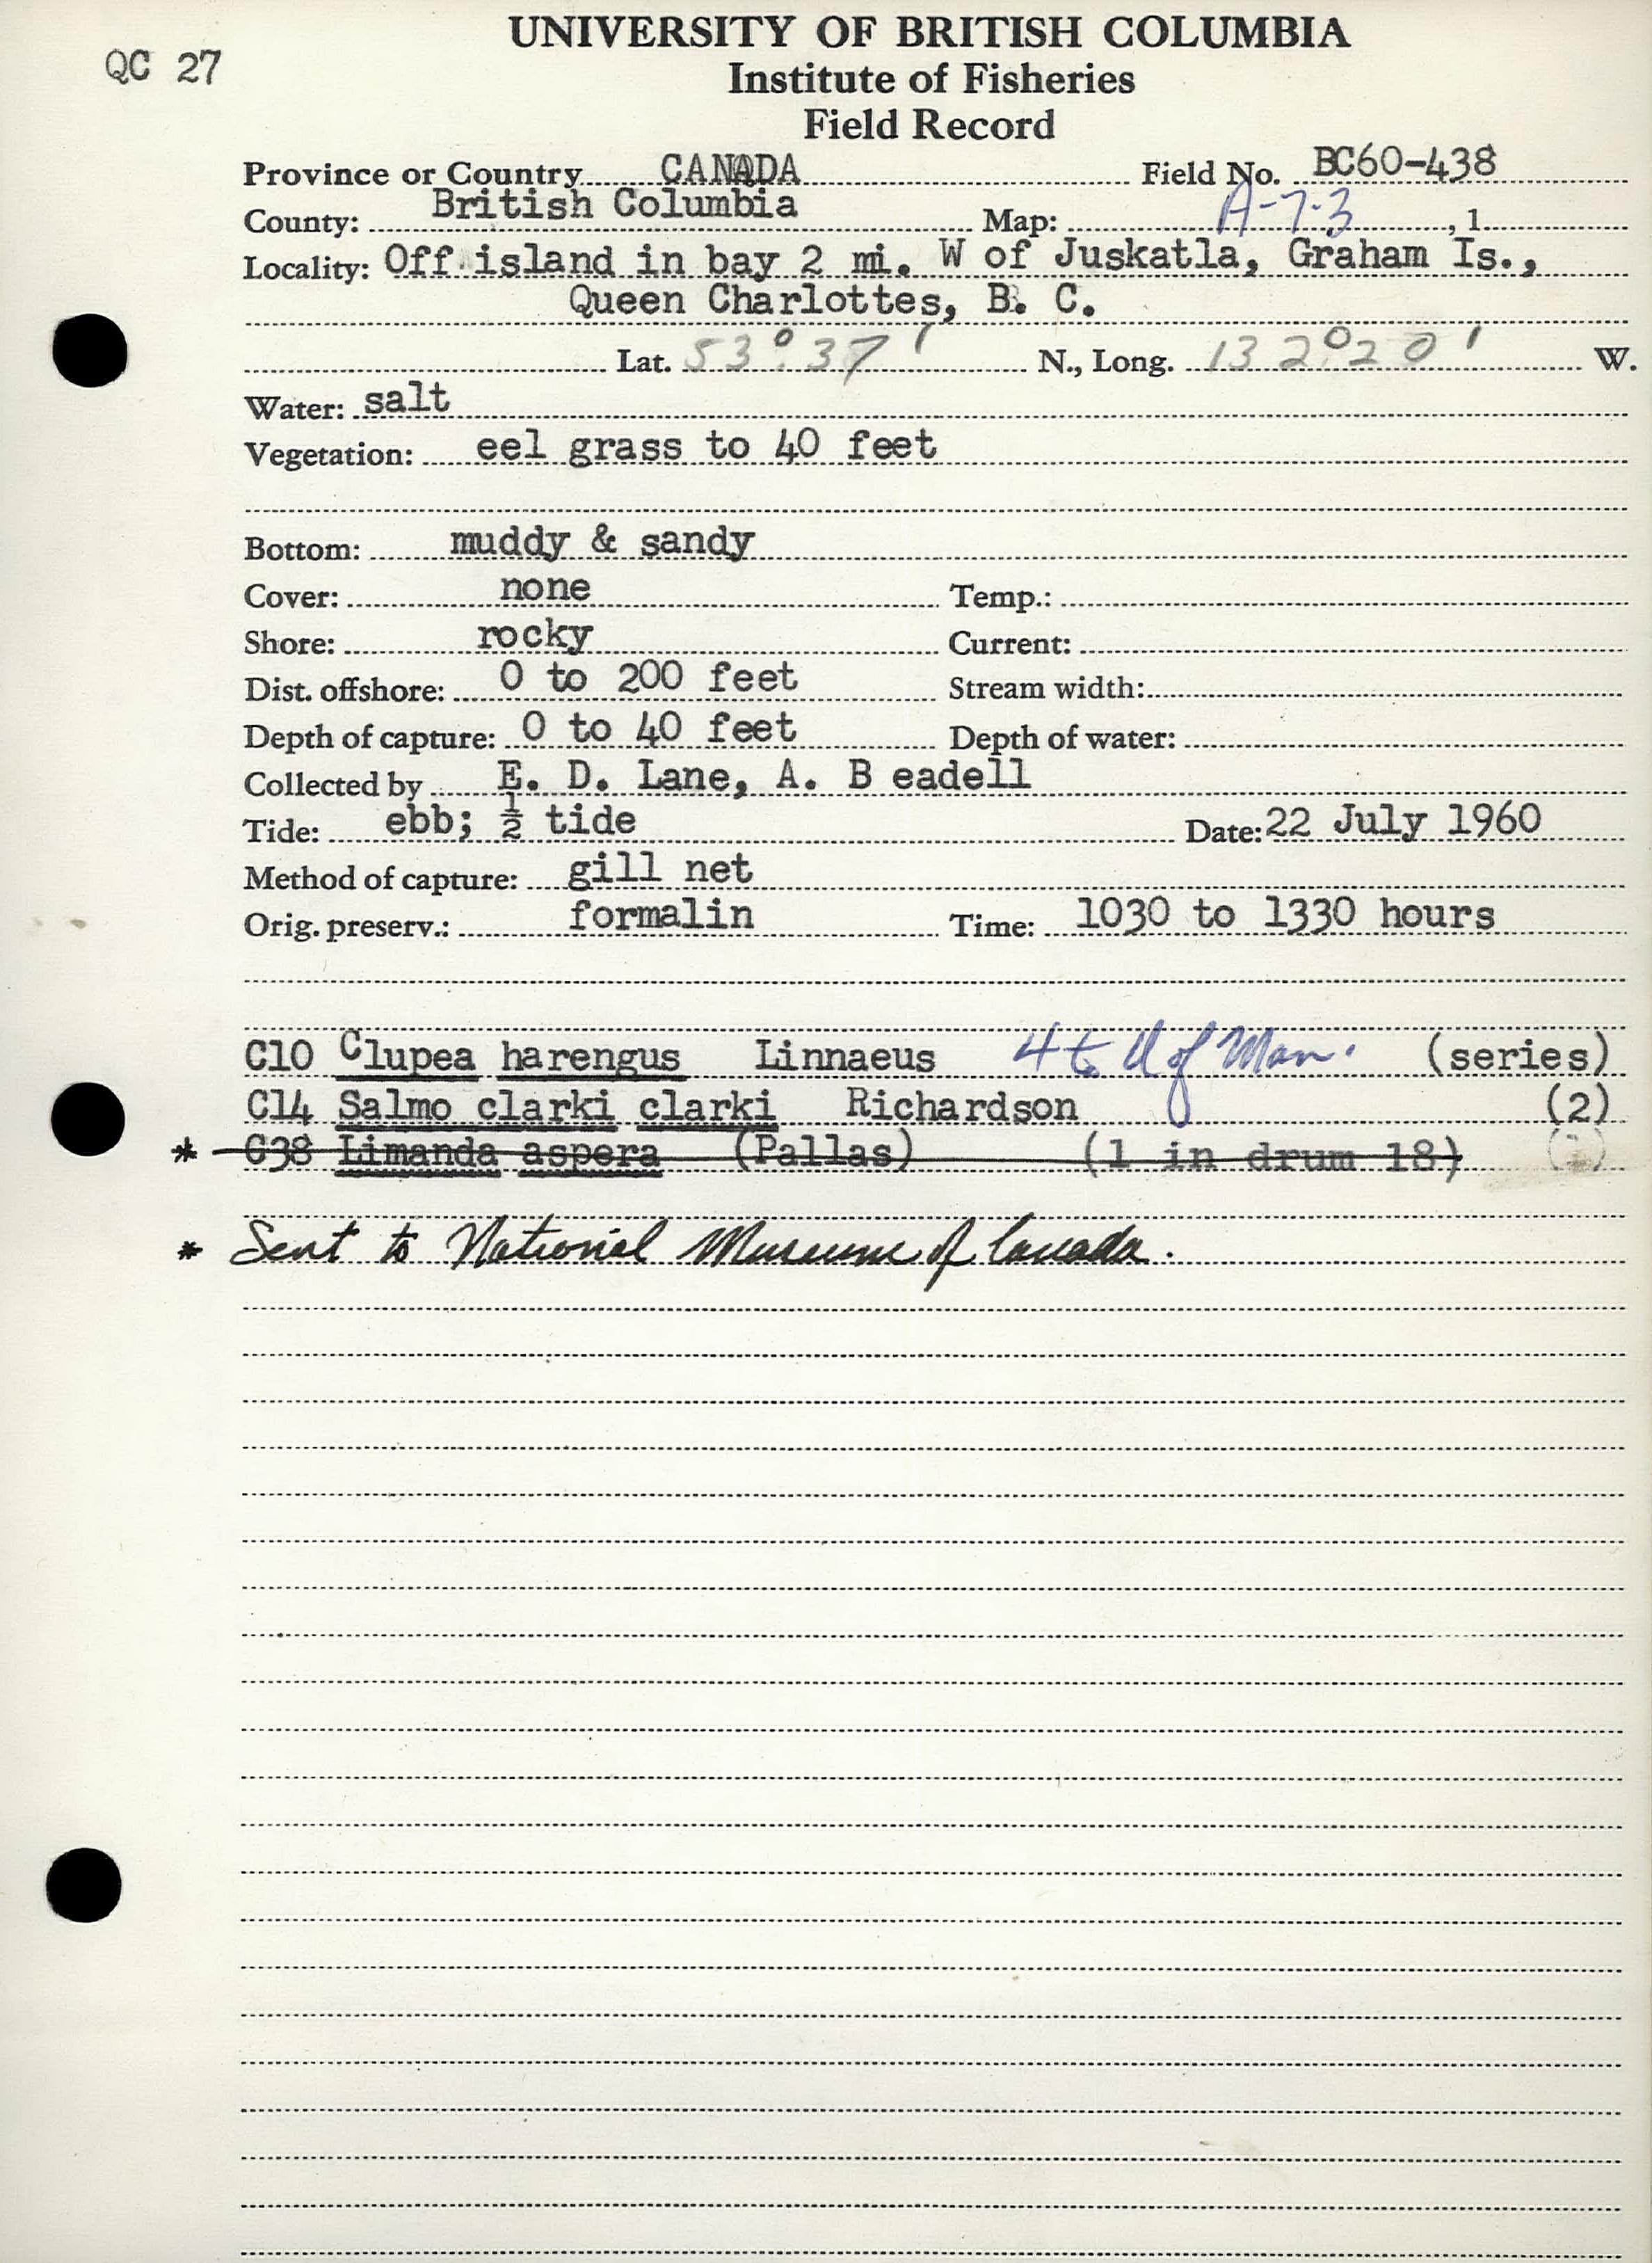 QC 27
UNIVERSITY OF BRITISH COLUMBIA
Institute of Fisheries
Field Record
Province or Country CANADA Field No. BC60-438
County: British Columbia Map: A-7-3, 1
Locality: Off island in bay 2 mi. W of Juskatla, Graham Is.,
Queen Charlottes, B. C.
Lat. 53° 37' N., Long. 132° 20' W.
Water: salt
Vegetation: eel grass to 40 feet
Bottom: muddy & sandy
Cover: none Temp.:
Shore: rocky Current:
Dist. offshore: 0 to 200 feet Stream width:
Depth of capture: 0 to 40 feet Depth of water:
Collected by E. D. Lane, A. B eadell
Tide: ebb; ½ tide Date: 22 July 1960
Method of capture: gill net
Orig. preserv.: formalin Time: 1030 to 1330 hours
C10 Clupea harengus Linnaeus 4 to U of Man. (series)
C14 Salmo clarki clarki Richardson (2)
* C38 Limanda aspera (Pallas) (1 in drum 18) (1)
* Sent to National Museum of Canada.